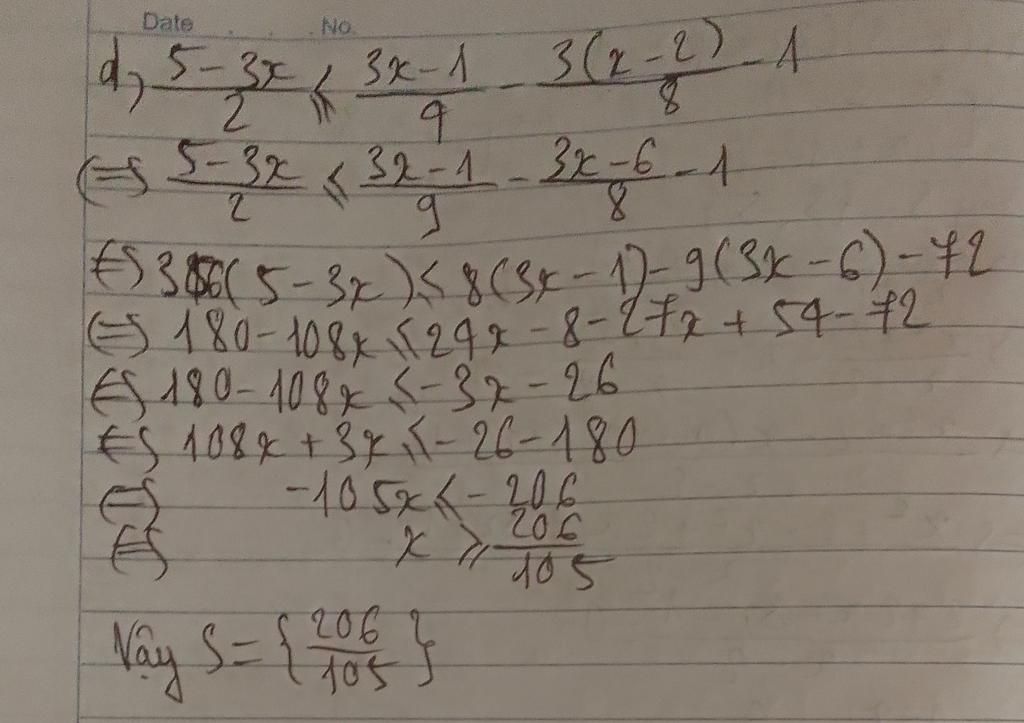 Date . . No.
d, \frac{5-3x}{2} ≤ \frac{3x-1}{9} - \frac{3(x-2)}{8} - 1
⇔ \frac{5-3x}{2} ≤ \frac{3x-1}{9} - \frac{3x-6}{8} - 1
⇔ 36(5-3x) ≤ 8(3x-1) - 9(3x-6) - 72
⇔ 180-108x ≤ 24x-8-27x+54-72
⇔ 180-108x ≤ -3x-26
⇔ 108x+3x ≤ -26-180
⇔ -105x ≤ -206
⇔ x ≥ \frac{206}{105}
Vậy S = {\frac{206}{105}}